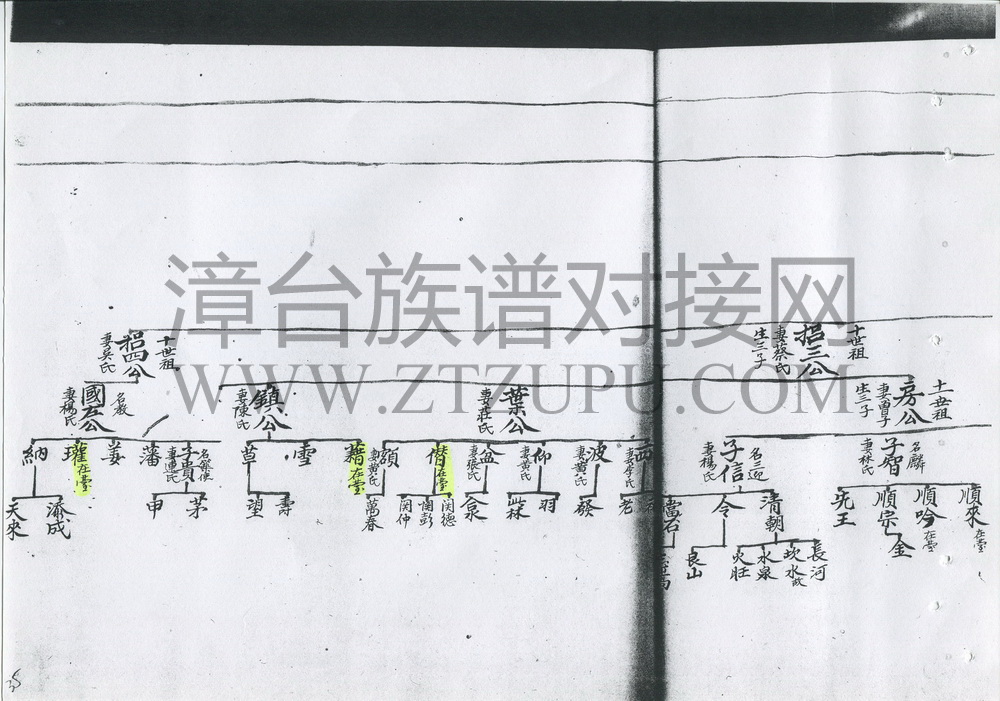 漳台族谱对接网
WWW.ZTZUPU.COM
十世祖
招三公
妻蔡氏
生三子
十世祖
招四公
妻吴氏
十一世祖
房公
妻曾子
生三子
葉公
妻莊氏
鎮公
妻陳氏
國左公
名教
妻楊氏
子智
名麟
妻林氏
子信
名三迎
妻楊氏
妻李氏
波
妻黄氏
仰
妻黄氏
盆
妻張氏
僣在臺
額
妻黄氏
藉在臺
雪
草
子貴
妻連氏
藩
姜
瓘在臺
納
順來在臺
順吟在臺
順宗
先王
清朝
令
當石
老
發
羽
冧
汆
閔德
憫彭
閔仲
萬春
壽
望
茅
申
渝成
天來
金
長河
坎水故
水泉
火旺
良山